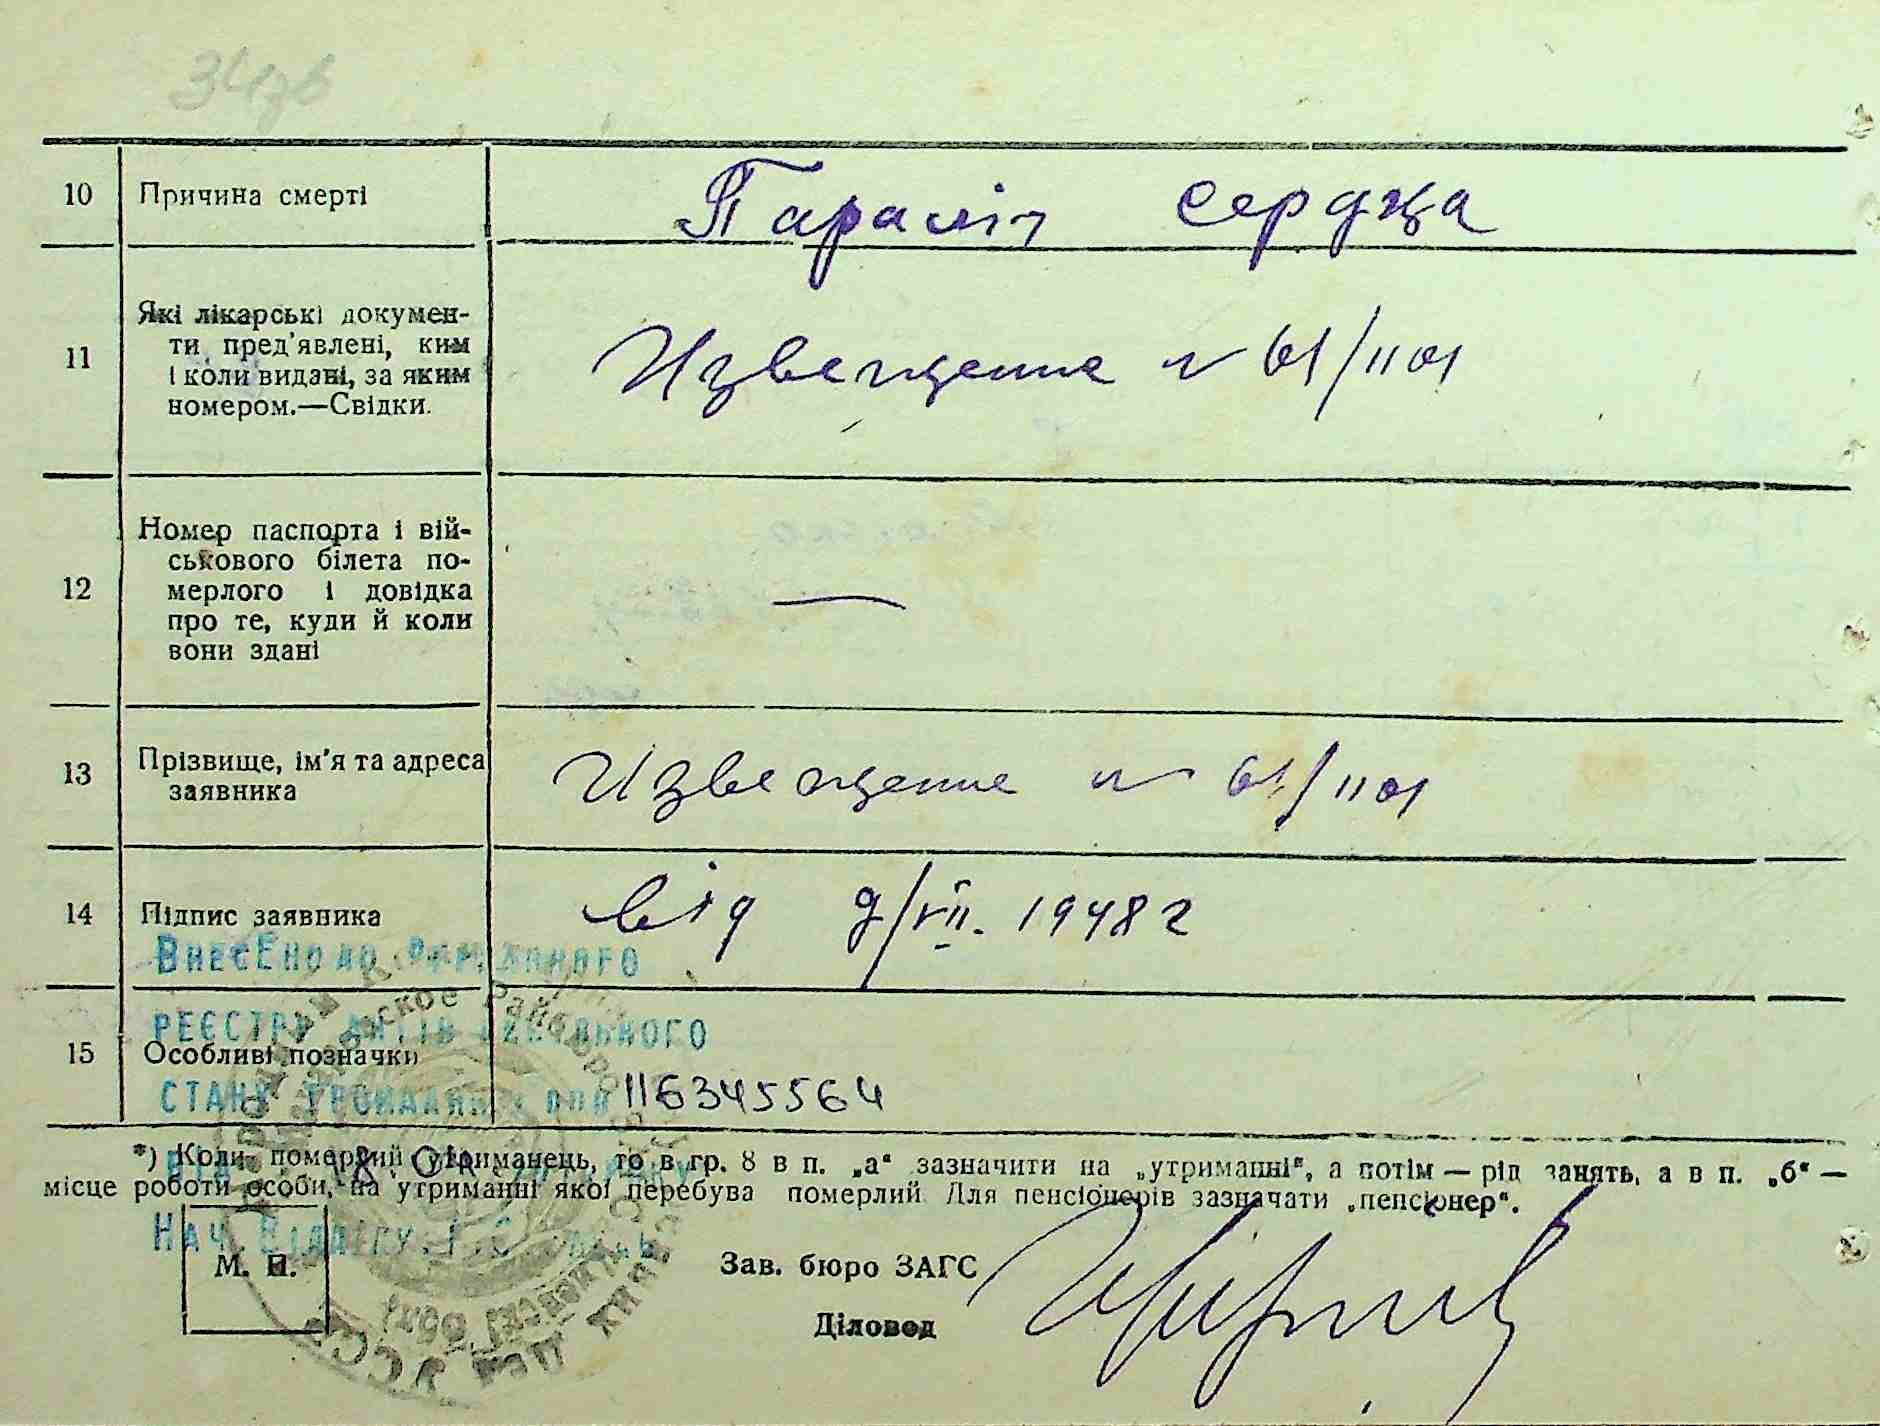 34зв
10 Причина смерті Параліч сердца
11 Які лікарські докумен-
ти пред'явлені, ким
і коли видані, за яким
номером.—Свідки.
Извещение № 61/1101
12 Номер паспорта і вій-
ськового білета по-
мерлого і довідка
про те, куди й коли
вони здані
—
13 Прізвище, ім'я та адреса
заявника
Извещение № 61/1101
14 Підпис заявника від 9/VII. 1948 г
ВнесЕно до
РЕЄСТРУ АКТІВ
15 Особливі позначки
СТАНУ ГРОМАДЯН 116345564
*) Коли померлий утриманець, то в гр. 8 в п. „а“ зазначити на „утриманні“, а потім — рід занять, а в п. „б“ —
місце роботи особи, на утриманні якої перебува померлий Для пенсіонерів зазначати „пенсіонер“.
Нач Відділу
М. П.
Зав. бюро ЗАГС
Діловод